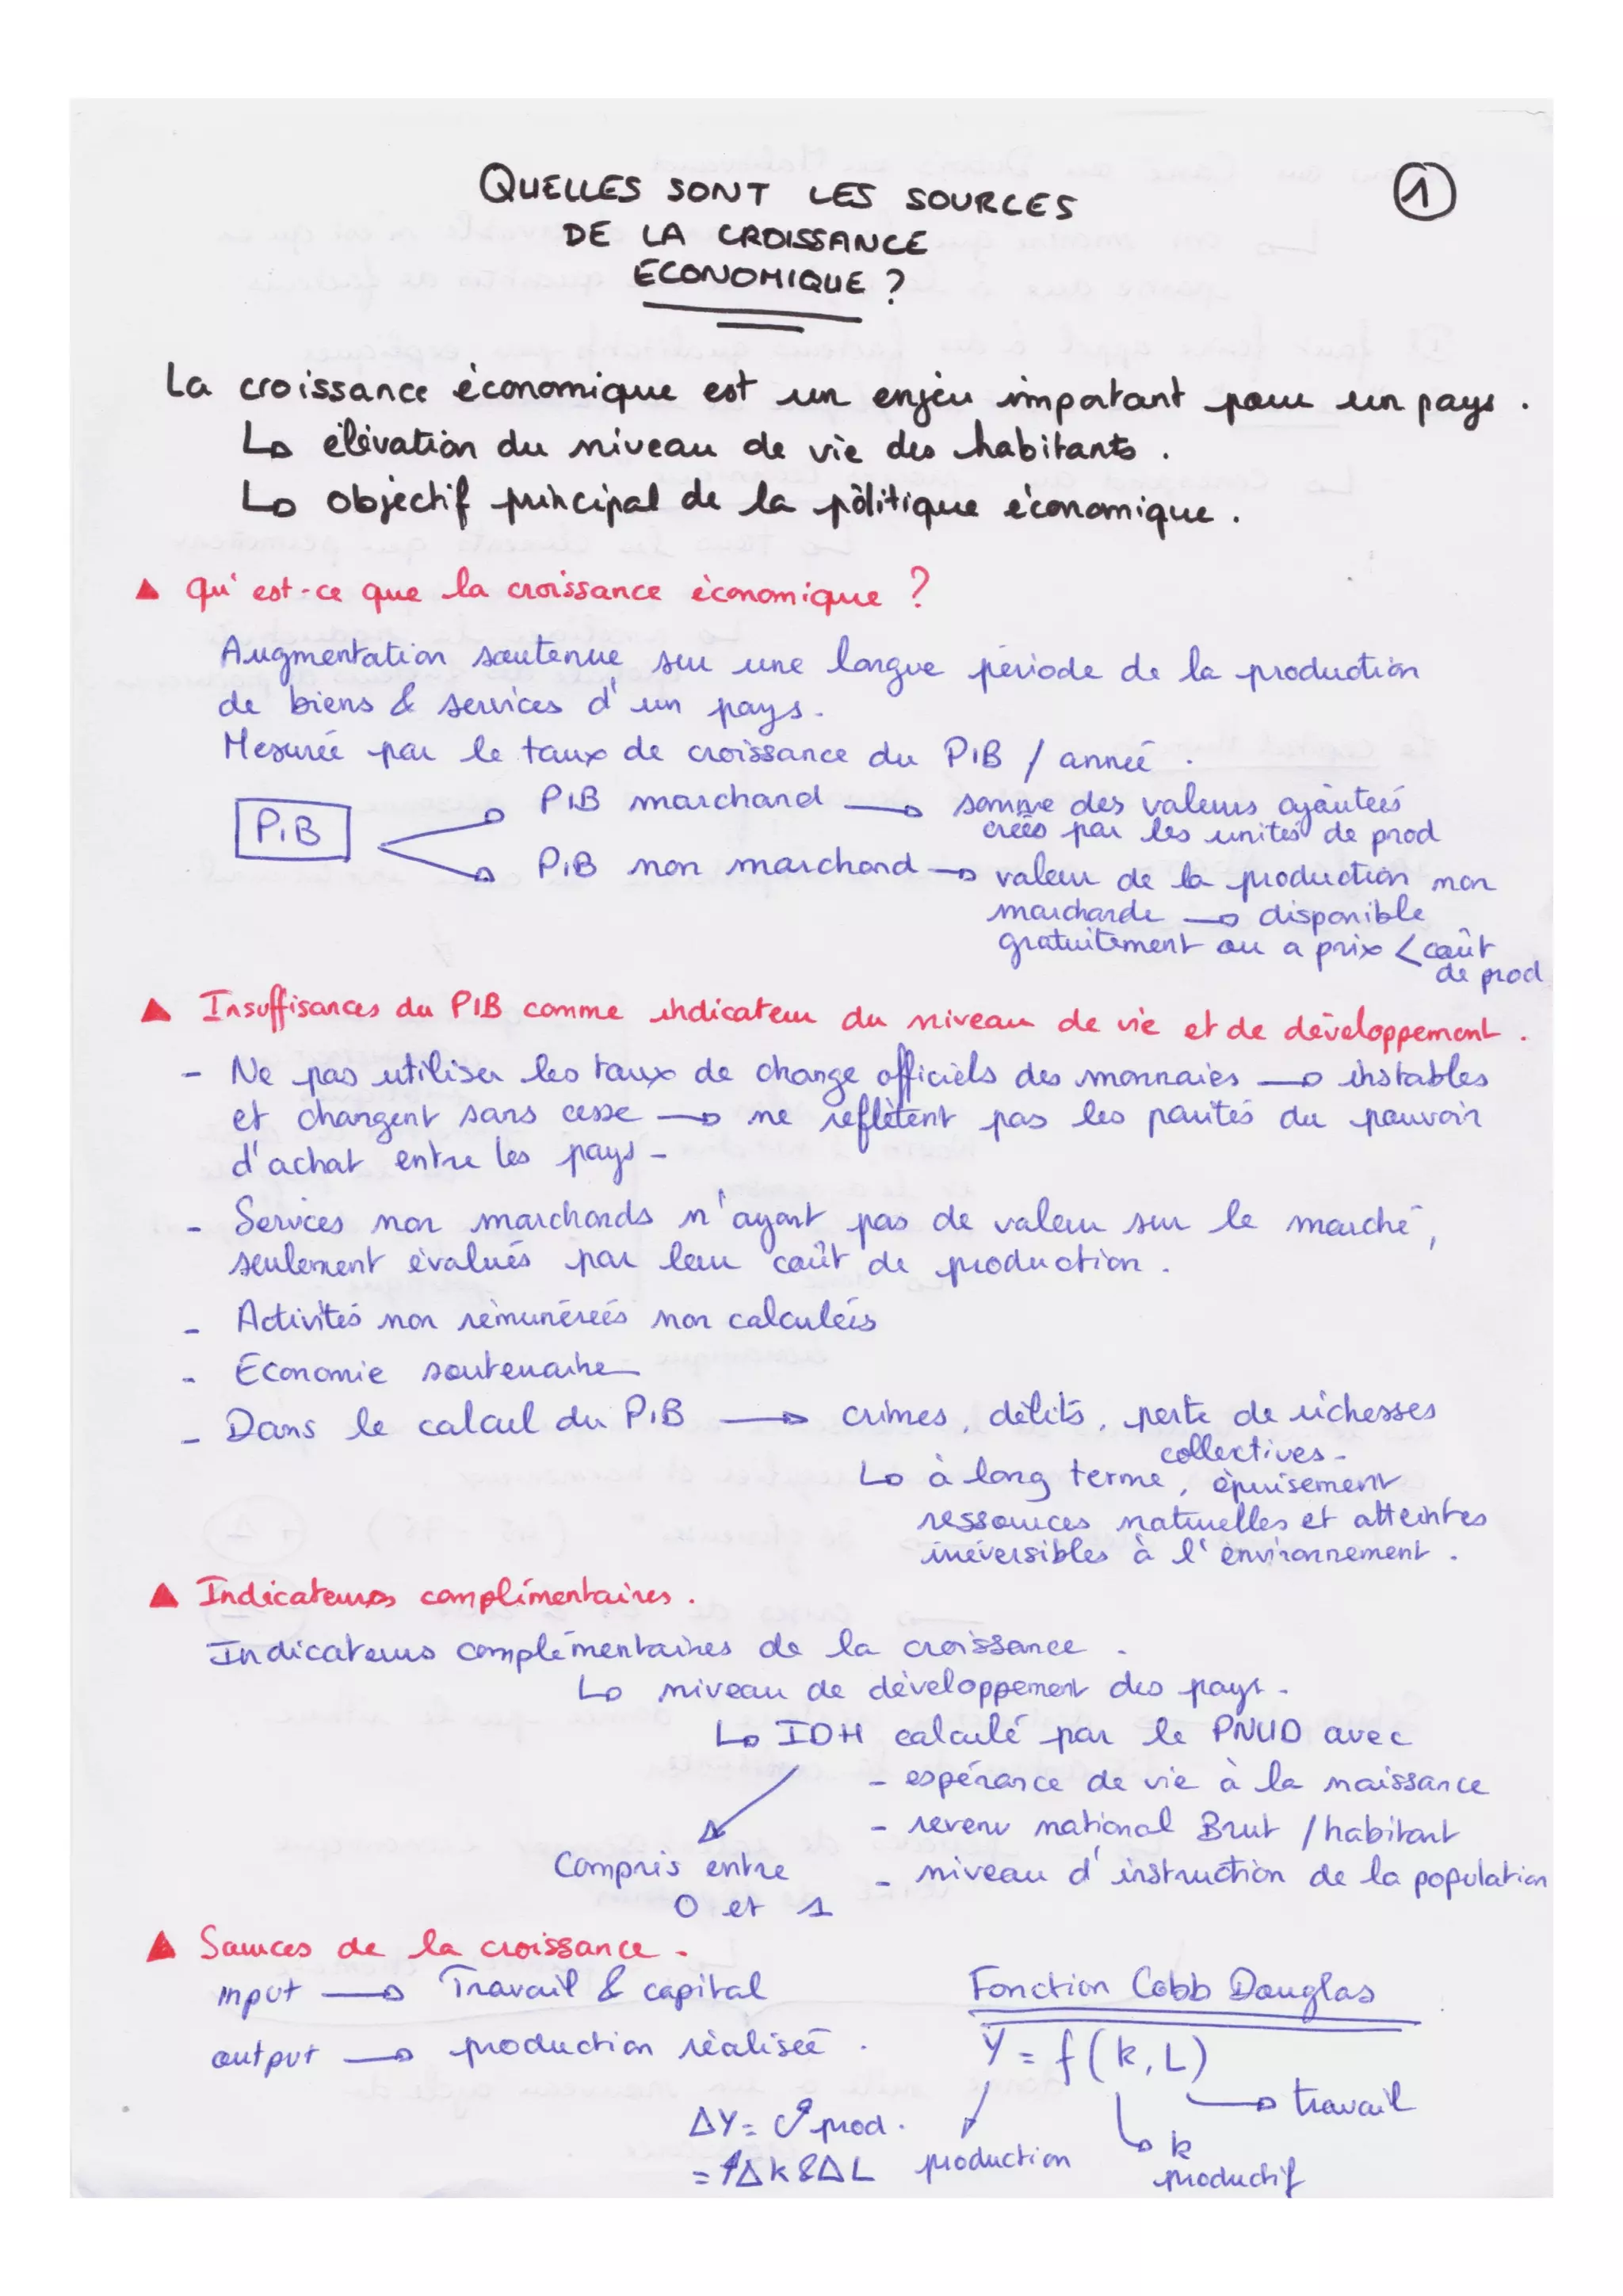 QUELLES SONT LES SOURCES
①
DE LA CROISSANCE
ECONOMIQUE ?
La croissance économique est un enjeu important pour un pays .
↳ élévation du niveau de vie des habitants .
↳ objectif principal de la politique économique .
▲ Qu'est-ce que la croissance économique ?
Augmentation soutenue sur une longue période de la production
de biens & services d'un pays.
Mesurée par le taux de croissance du PIB / année .
PIB
PIB marchand → somme des valeurs ajoutées
créés par les unités de prod
PIB non marchand → valeur de la production non
marchande → disponible
gratuitement ou a prix < coût
de prod
▲ Insuffisances du PIB comme indicateur du niveau de vie et de développement .
- Ne pas utiliser les taux de change officiels des monnaies → instables
et changent sans cesse → ne reflètent pas les parités du pouvoir
d'achat entre les pays -
- Services non marchands n'ayant pas de valeur sur le marché ,
seulement évalués par leur coût de production .
- Activités non rémunérées non calculées
- Economie souterraine
- Dans le calcul du PIB → crimes, délits, perte de richesses
collectives -
↳ à long terme, épuisement
ressources naturelles et atteintes
irréversibles à l'environnement .
▲ Indicateurs complémentaires .
Indicateurs complémentaires de la croissance .
↳ niveau de développement des pays -
↳ IDH calculé par le PNUD avec
- espérance de vie à la naissance
- revenu national Brut / habitant
- niveau d'instruction de la population
Compris entre
0 et 1
▲ Sources de la croissance -
input → Travail & capital
output → production réalisée .
Fonction Cobb Douglas
Y = f(k, L)
→ travail
↳ k
productif
production
ΔY = prod .
= Δk & ΔL